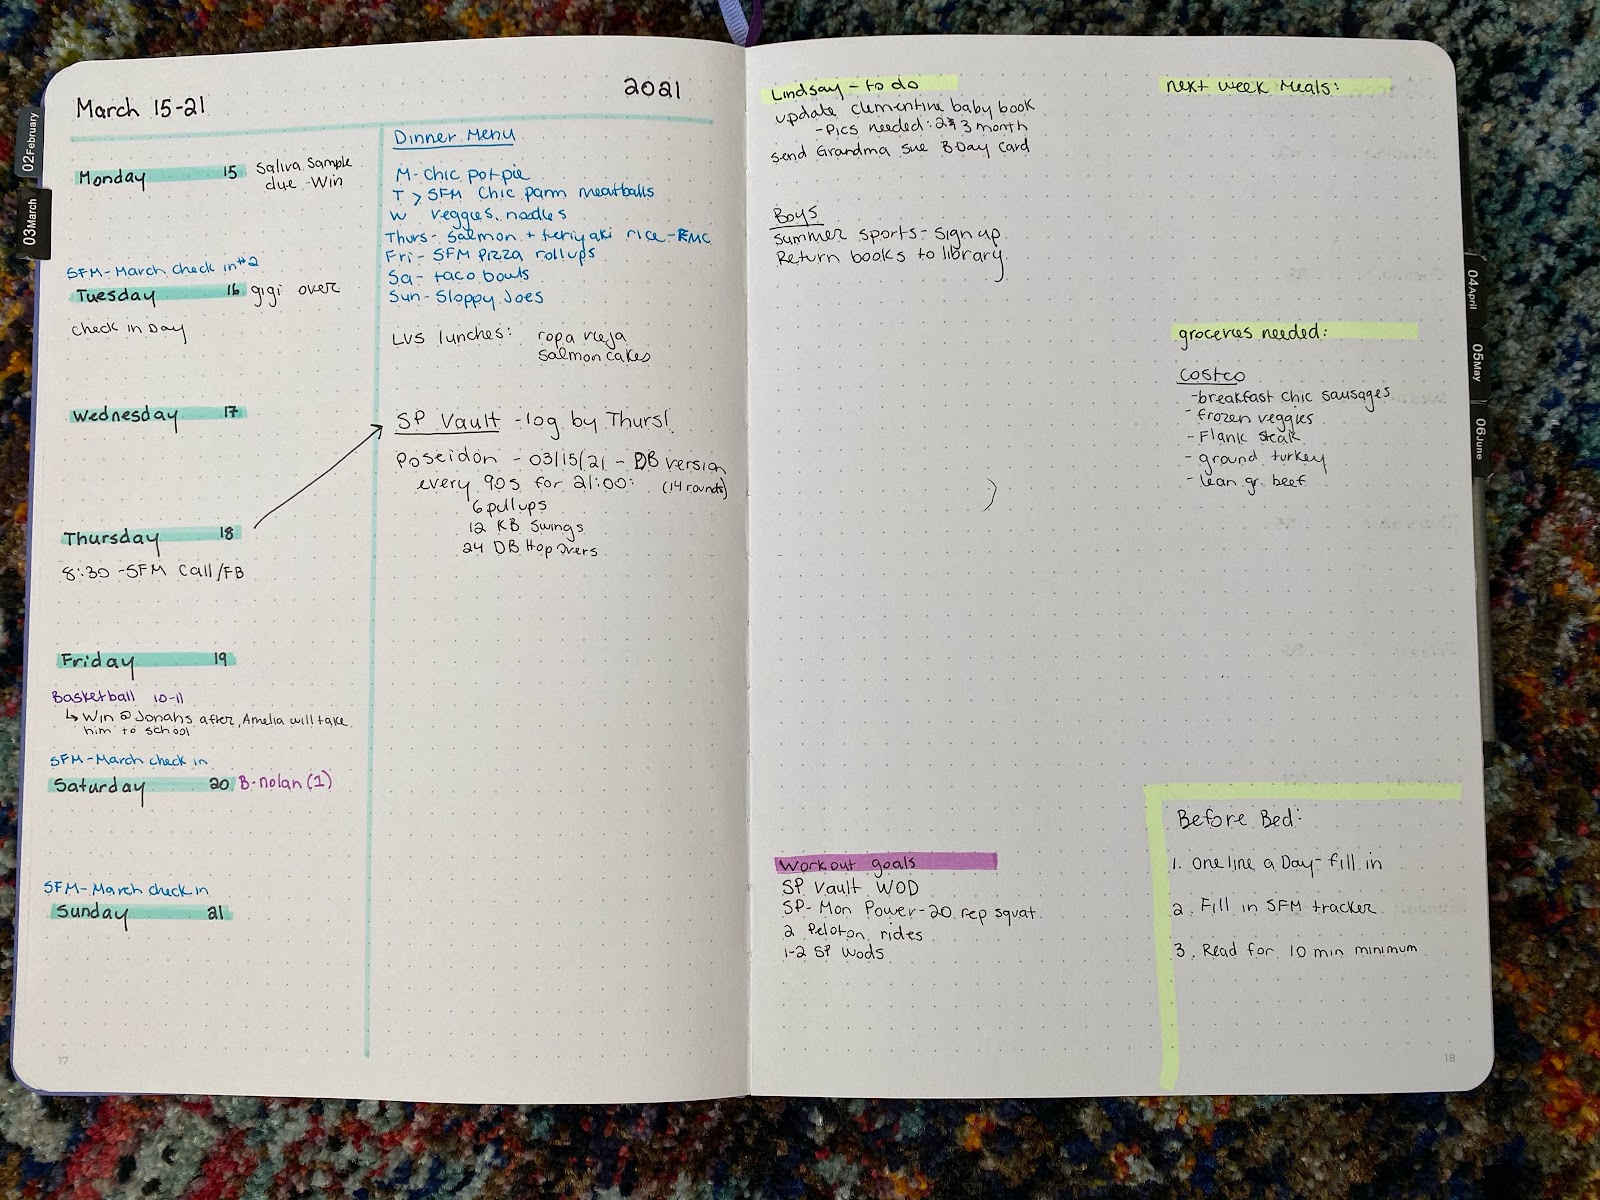 March 15-21
2021
Monday 15 Saliva Sample
due - Win
SFM-March check in #2
Tuesday 16 gigi over
check in Day
Wednesday 17
Thursday 18
8:30 -SFM call/FB
Friday 19
Basketball 10-11
↳ Win @ Jonahs after, Amelia will take
him to school
SFM-March check in
Saturday 20 B-nolan (1)
SFM-March check in
Sunday 21
Dinner Menu
M- Chic potpie
T > SFM Chic parm meatballs
W veggies, noodles
Thurs- Salmon + teriyaki rice - EMC
Fri- SFM Pizza rollups
Sa- taco bowls
Sun- Sloppy Joes
LVS lunches: ropa vieja
salmon cakes
SP Vault - log by Thurs!
Poseidon - 03/15/21 - DB version
every 90s for 21:00: (14 rounds)
6 pullups
12 KB Swings
24 DB Hop Overs
17
Lindsay - to do
update Clementine baby book
-Pics needed: 2 + 3 month
send Grandma Sue BDay Card
Boys
summer sports- sign up
Return books to library
Workout goals
SP Vault WOD
SP- Mon Power- 20 rep squat
2 Peloton rides
1-2 SP Wods
next week Meals:
groceries needed:
Costco
-breakfast chic sausages
- frozen veggies
- Flank steak
- ground turkey
- lean gr. beef
Before Bed:
1. One line a Day- fill in
2. Fill in SFM tracker
3. Read for 10 min minimum
18
02 February
03 March
04 April
05 May
06 June